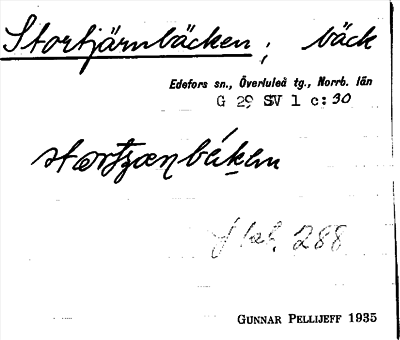 Stortjärnbäcken ; bäck
Edefors sn., Överluleå tg., Norrb. län
G 29 SV 1 c:30
288
GUNNAR PELLIJEFF 1935